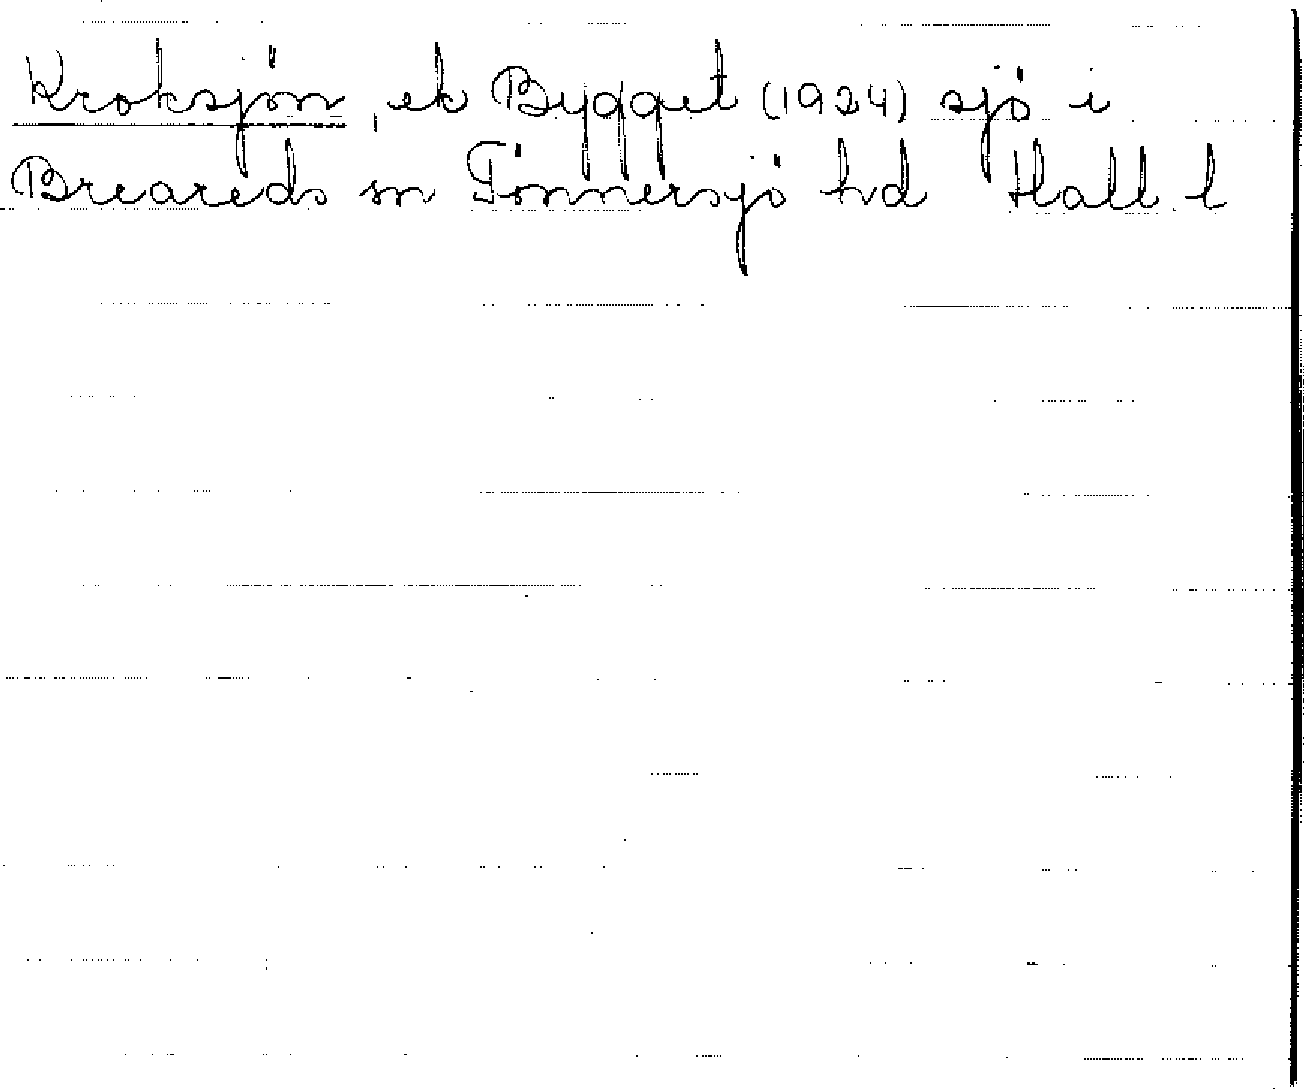 Kroksjön, ek Bygget (1924) sjö i
Breareds sn Tönnersjö hd Hall l